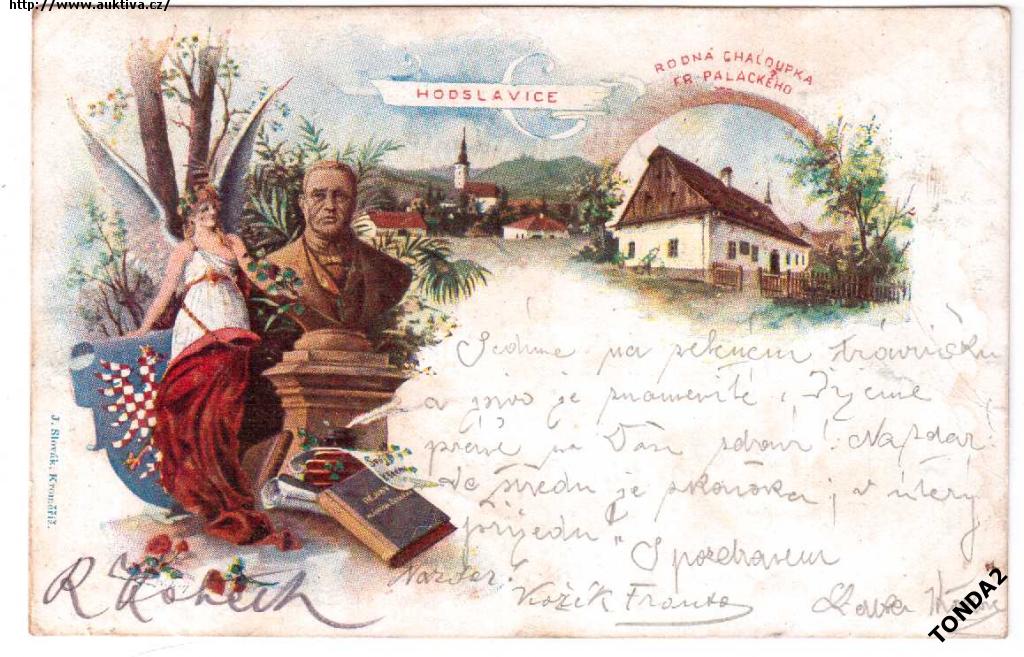 http://www.auktiva.cz/
HODSLAVICE
RODNÁ CHALOUPKA
FR. PALACKÉHO
Sedíme na pěkném trávníčku
a pivo je znamenité
právě na Vaše zdraví! Nazdar!
Ve středu je zkouška, v úterý
přijedu
S pozdravem
Nazdar
Franta
J. Slovák, Kroměříž.
DĚJINY
TONDA2